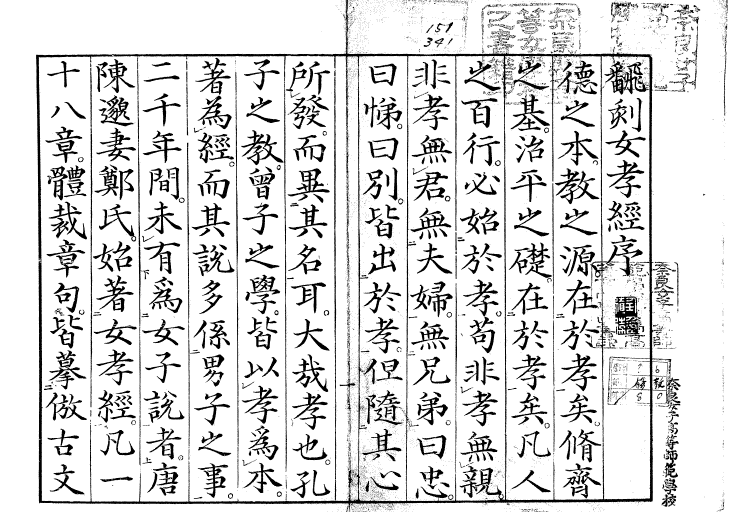 飜刻女孝經序
德之本。教之源在於孝矣。脩齊
之基。治平之礎。在於孝矣。凡人
之百行。必始於孝。苟非孝無親。
非孝無君。無夫婦。無兄弟。曰忠。
曰悌。曰別。皆出於孝。但隨其心
所發。而異其名耳。大哉孝也。孔
子之教。曾子之學。皆以孝為本。
著為經。而其說多係男子之事。
二千年間。未有為女子說者。唐
陳邈妻鄭氏。始著女孝經。凡一
十八章。體裁章句。皆摹倣古文
151
341
奈良女子高等師範學校